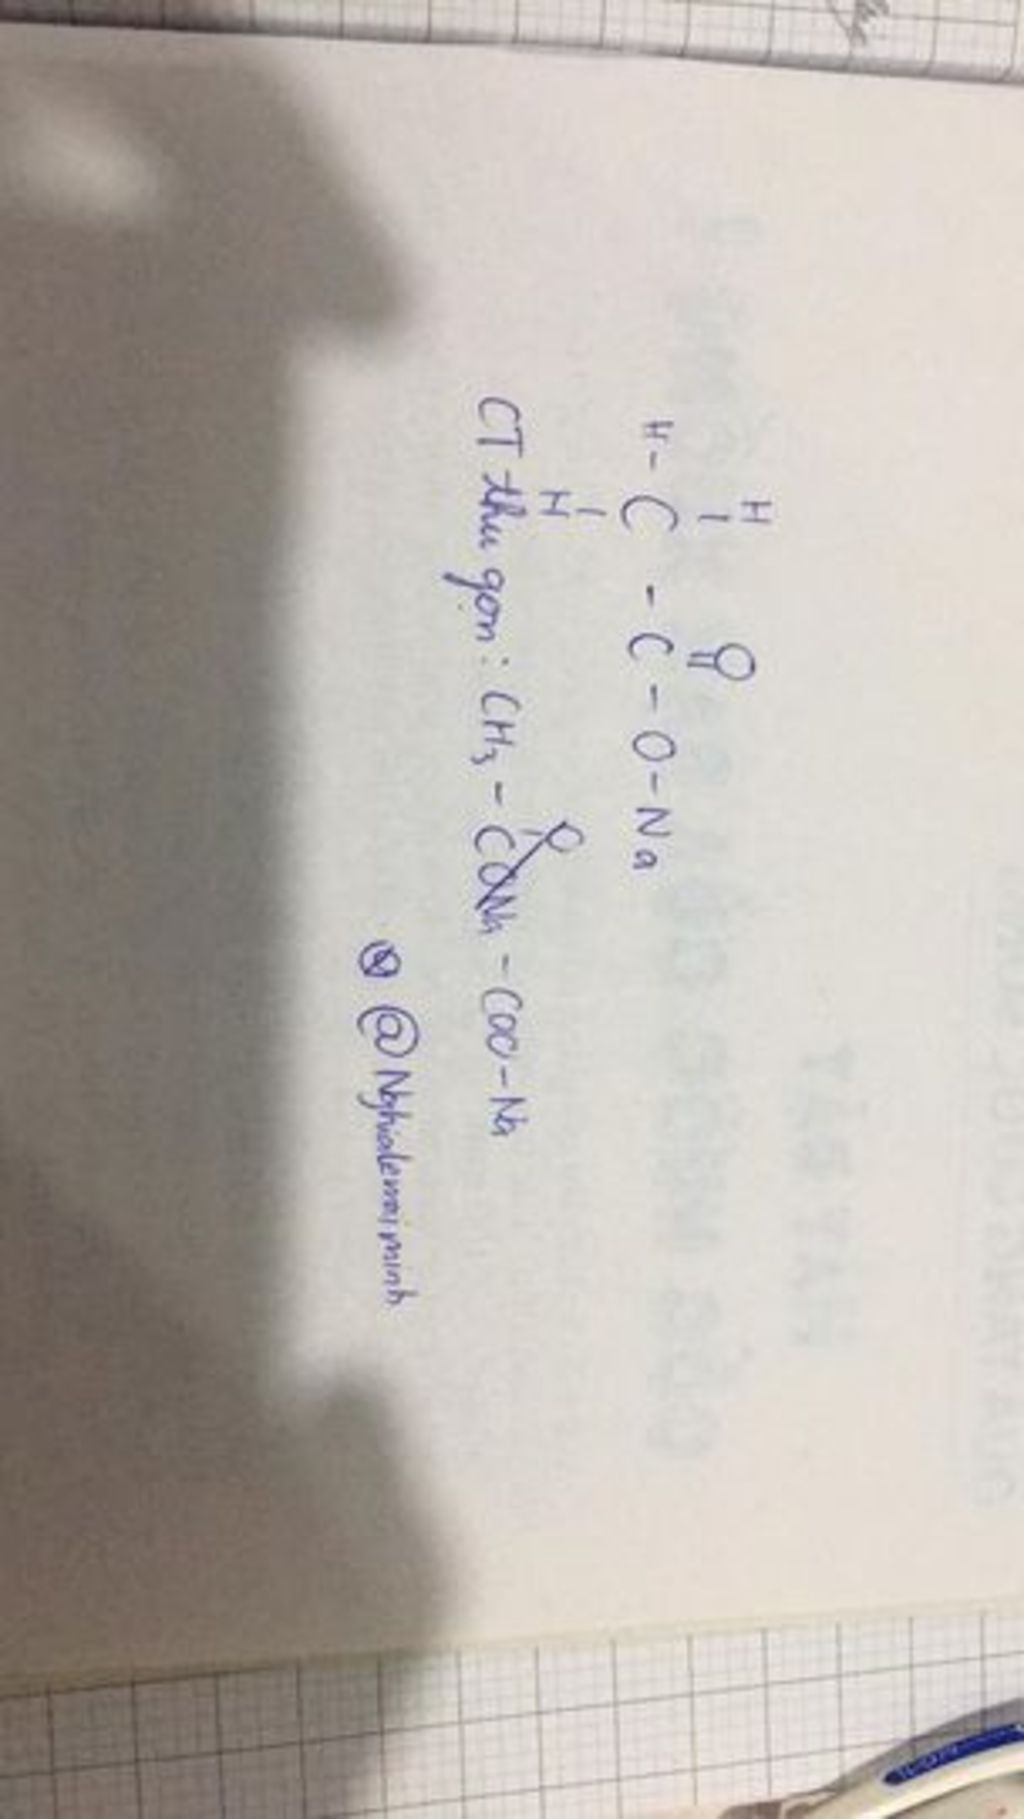 H O
H - C - C - O - Na
H
CT thu gọn : CH3 - CONa - COO - Na
@Nghialemaiminh